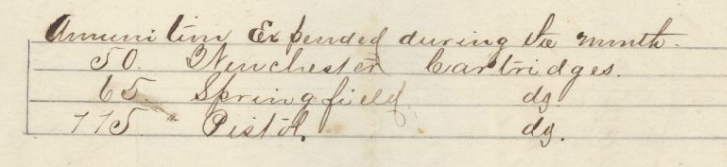 Amunition Expended during the month.
50. Winchester Cartridges.
65. Springfield. dg
115 " Pistol. dg.